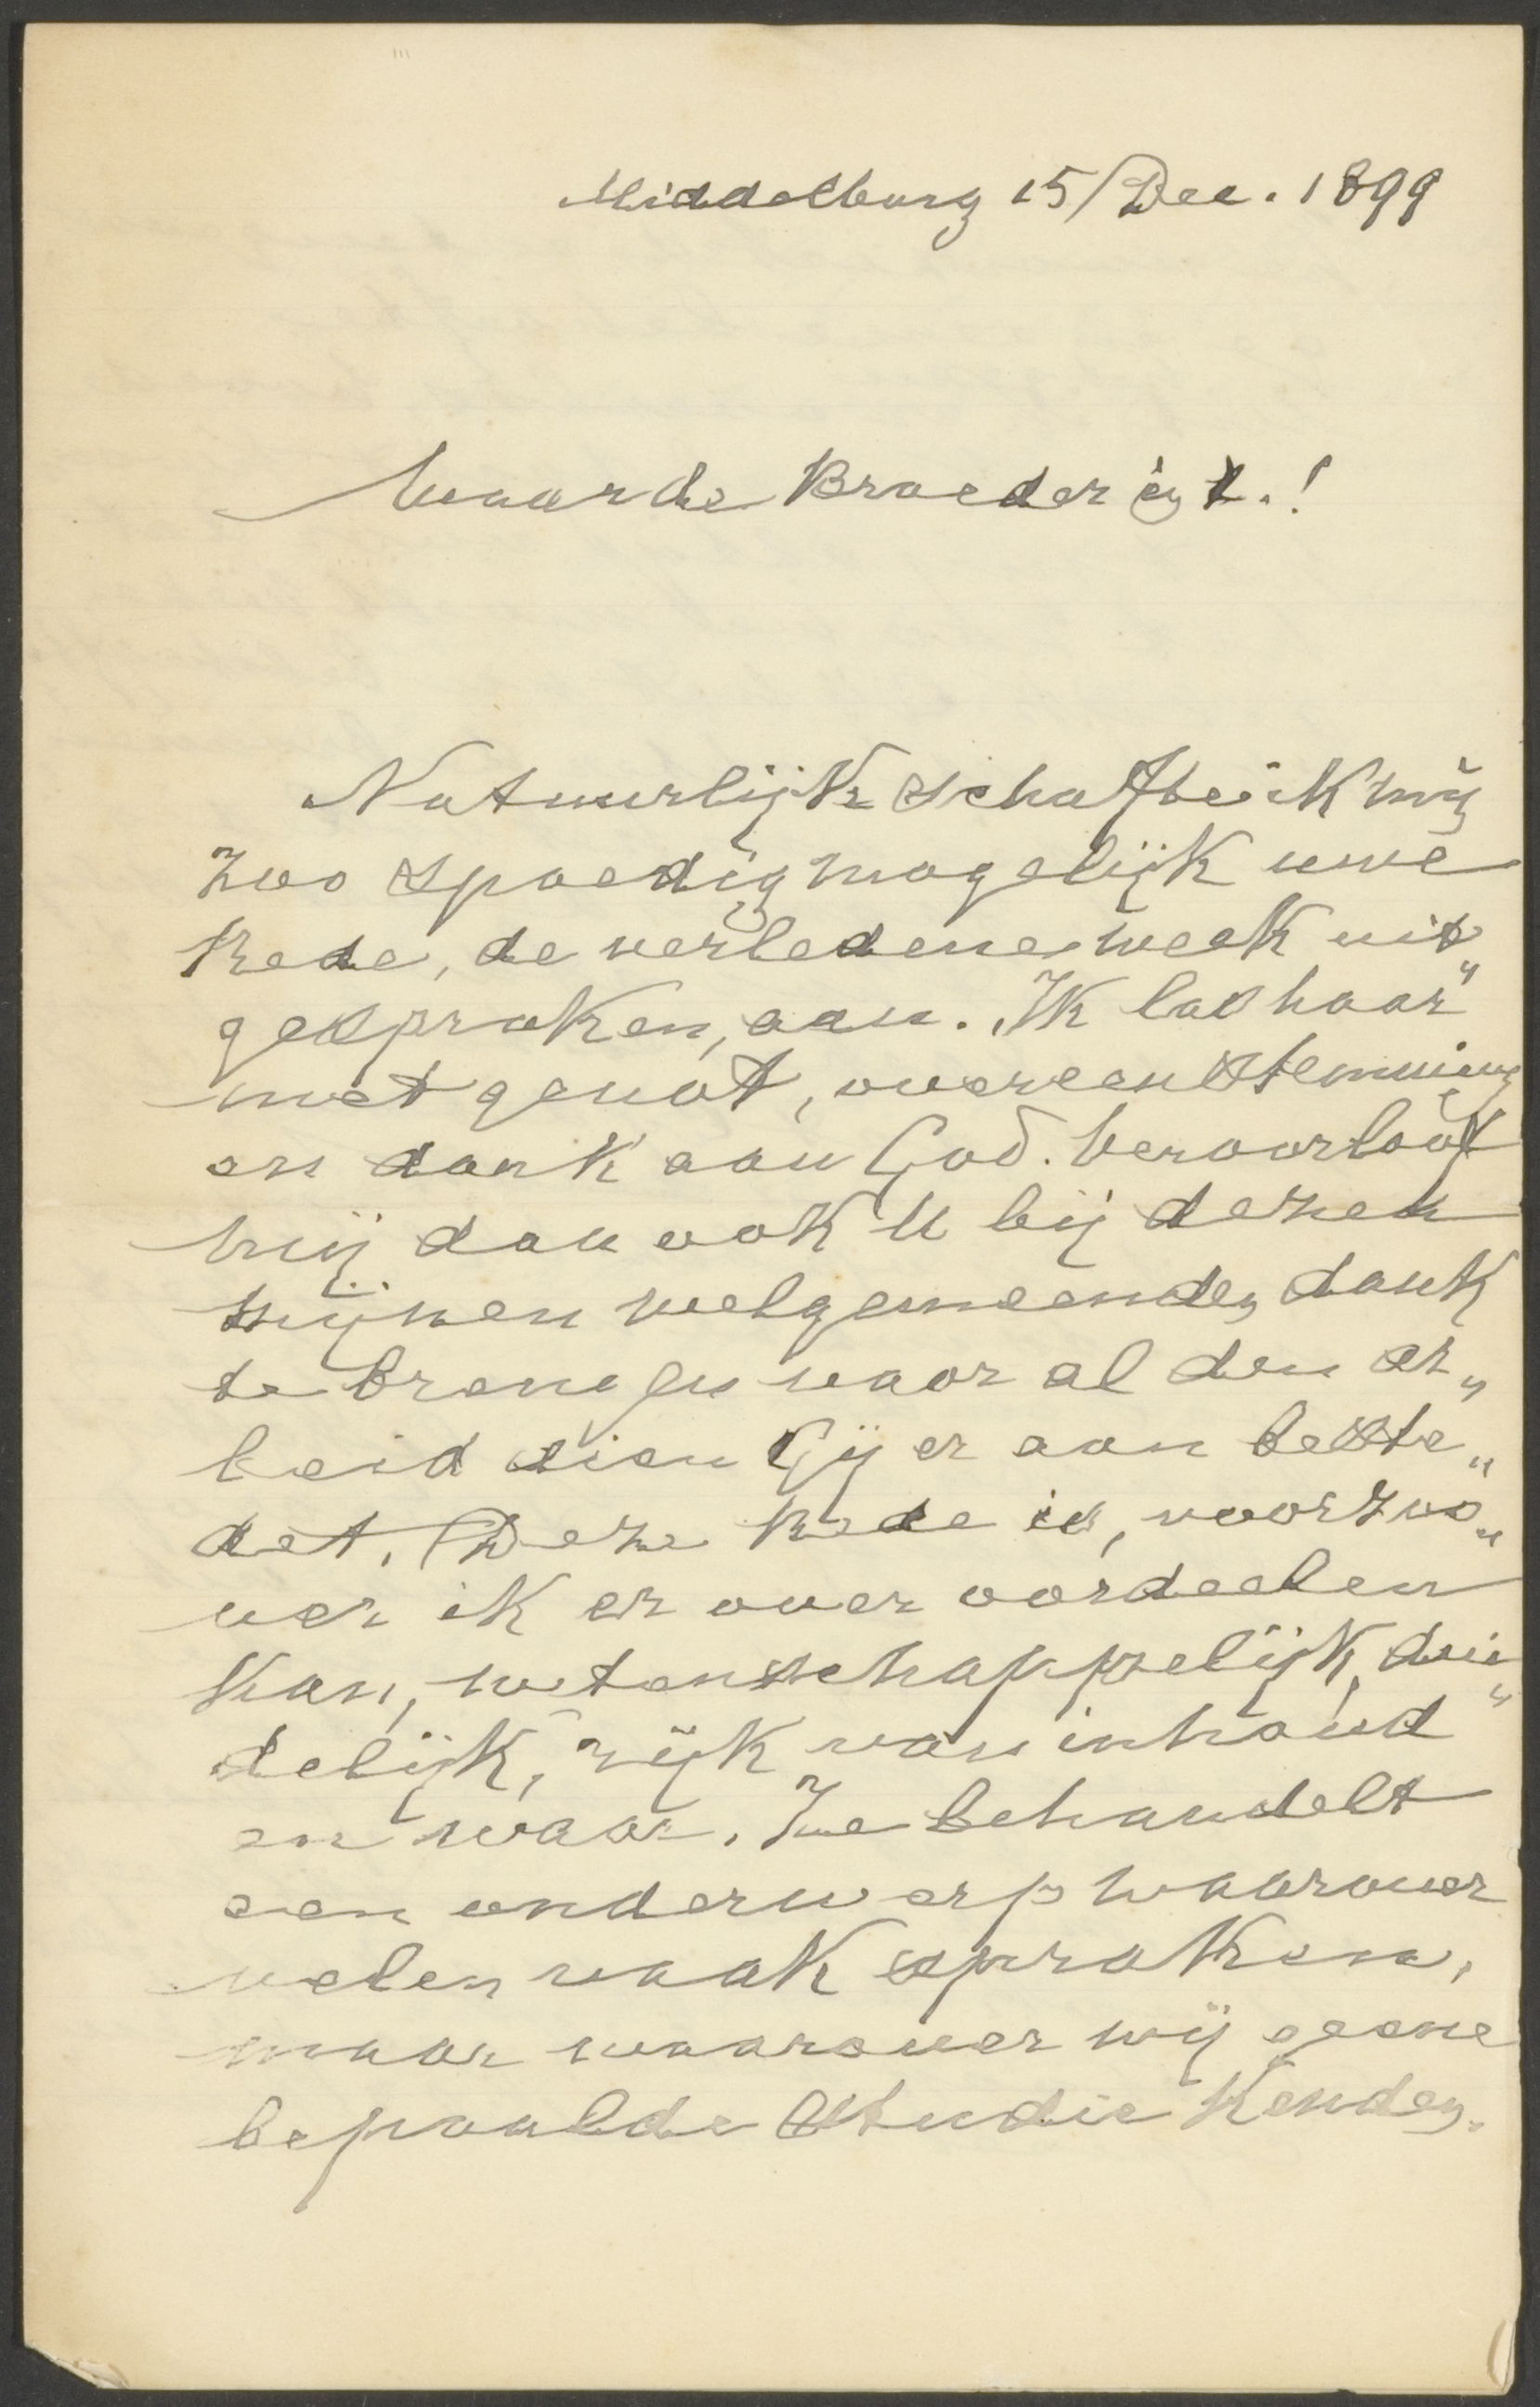 Middelburg 15/Dec. 1899
Waarde Broeder in X.!
Natuurlijk schafte ik mij
zoo spoedig mogelijk uwe
Rede, de verledene week uit„
gesproken, aan. Ik las haar
met genot, overeenstemming
en dank aan God. Veroorlooft
mij dan ook U bij dezen
mijnen welgemeenden dank
te brengen voor al den ar„
beid dien Gij er aan beste„
det. Deze Rede is, voorzoo„
ver ik er over oordeelen
kan, wetenschappelijk, dui„
delijk, rijk van inhoud
en waar. Ze behandelt
een onderwerp waarover
velen vaak spraken,
maar waarover wij geene
bepaalde Studie kenden.